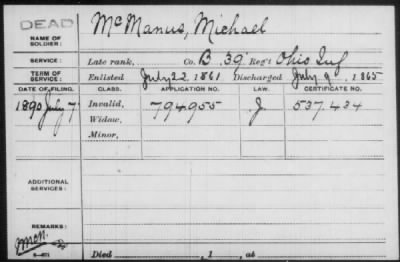 DEAD
NAME OF SOLDIER: McManus, Michael
SERVICE: Late rank, Co. B. 39 Reg't Ohio Inf
TERM OF SERVICE: Enlisted July 22 1861 Discharged July 9 1865
DATE OF FILING. CLASS. APPLICATION NO. LAW. CERTIFICATE NO.
1890 July 7 Invalid, 794955 J 537.434
Widow,
Minor,
ADDITIONAL SERVICES:
REMARKS:
Died , 1 , at